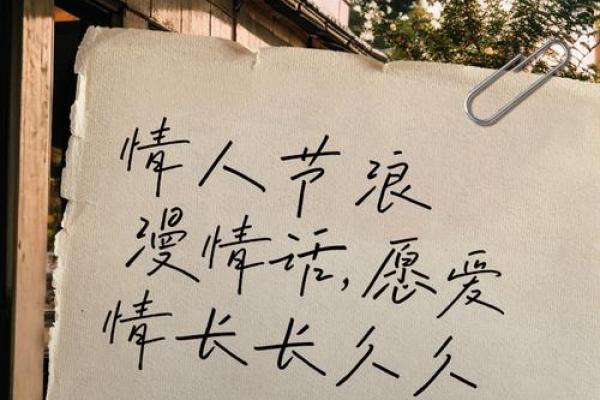 情人节浪
漫情话,愿爱
情长长久久